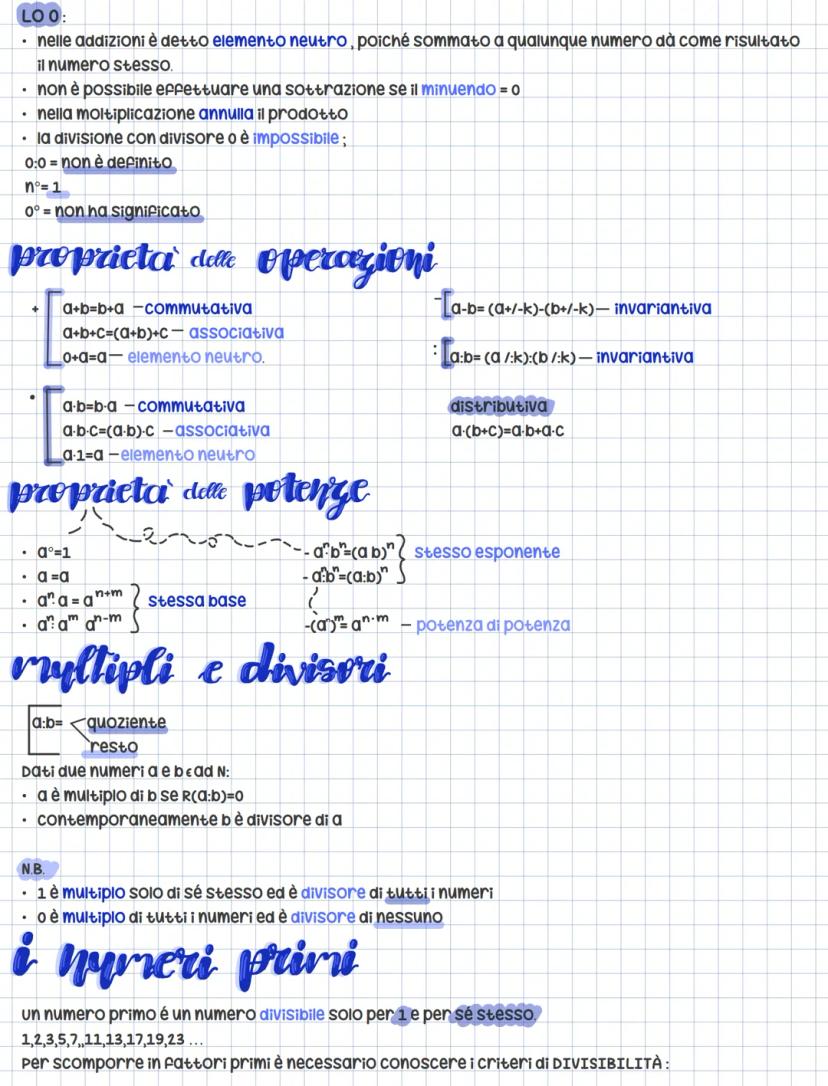 LO 0:
· nelle addizioni è detto elemento neutro, poiché sommato a qualunque numero dà come risultato
il numero stesso.
· non è possibile effettuare una sottrazione se il minuendo = 0
· nella moltiplicazione annulla il prodotto
· la divisione con divisore 0 è impossibile;
0:0 = non è definito
n°= 1
0° = non ha significato
proprietà delle operazioni
+ a+b=b+a — commutativa
a+b+c=(a+b)+c — associativa
0+a=a — elemento neutro.
- a-b= (a+/-k)-(b+/-k) — invariantiva
: a:b= (a·/:k):(b·/:k) — invariantiva
· a·b=b·a — commutativa
a·b·c=(a·b)·c — associativa
a·1=a — elemento neutro
distributiva
a·(b+c)=a·b+a·c
proprietà delle potenze
· a°=1
· a =a
· aⁿ·a = aⁿ⁺ᵐ
· aⁿ:aᵐ aⁿ⁻ᵐ
stessa base
- aⁿ·bⁿ=(a b)ⁿ
- aⁿ:bⁿ=(a:b)ⁿ
stesso esponente
-(aⁿ)ᵐ= aⁿ·ᵐ — potenza di potenza
multipli e divisori
a:b= quoziente
resto
Dati due numeri a e b ε ad N:
· a è multiplo di b se R(a:b)=0
· contemporaneamente b è divisore di a
N.B.
· 1 è multiplo solo di sé stesso ed è divisore di tutti i numeri
· 0 è multiplo di tutti i numeri ed è divisore di nessuno
i numeri primi
un numero primo é un numero divisibile solo per 1 e per sé stesso.
1,2,3,5,7,,11,13,17,19,23 ...
Per scomporre in fattori primi è necessario conoscere i criteri di DIVISIBILITÀ: